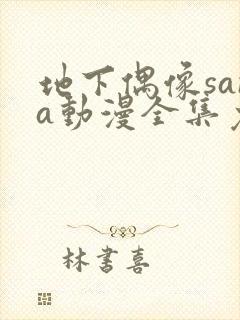 地下偶像sa
a動漫全集
林書喜